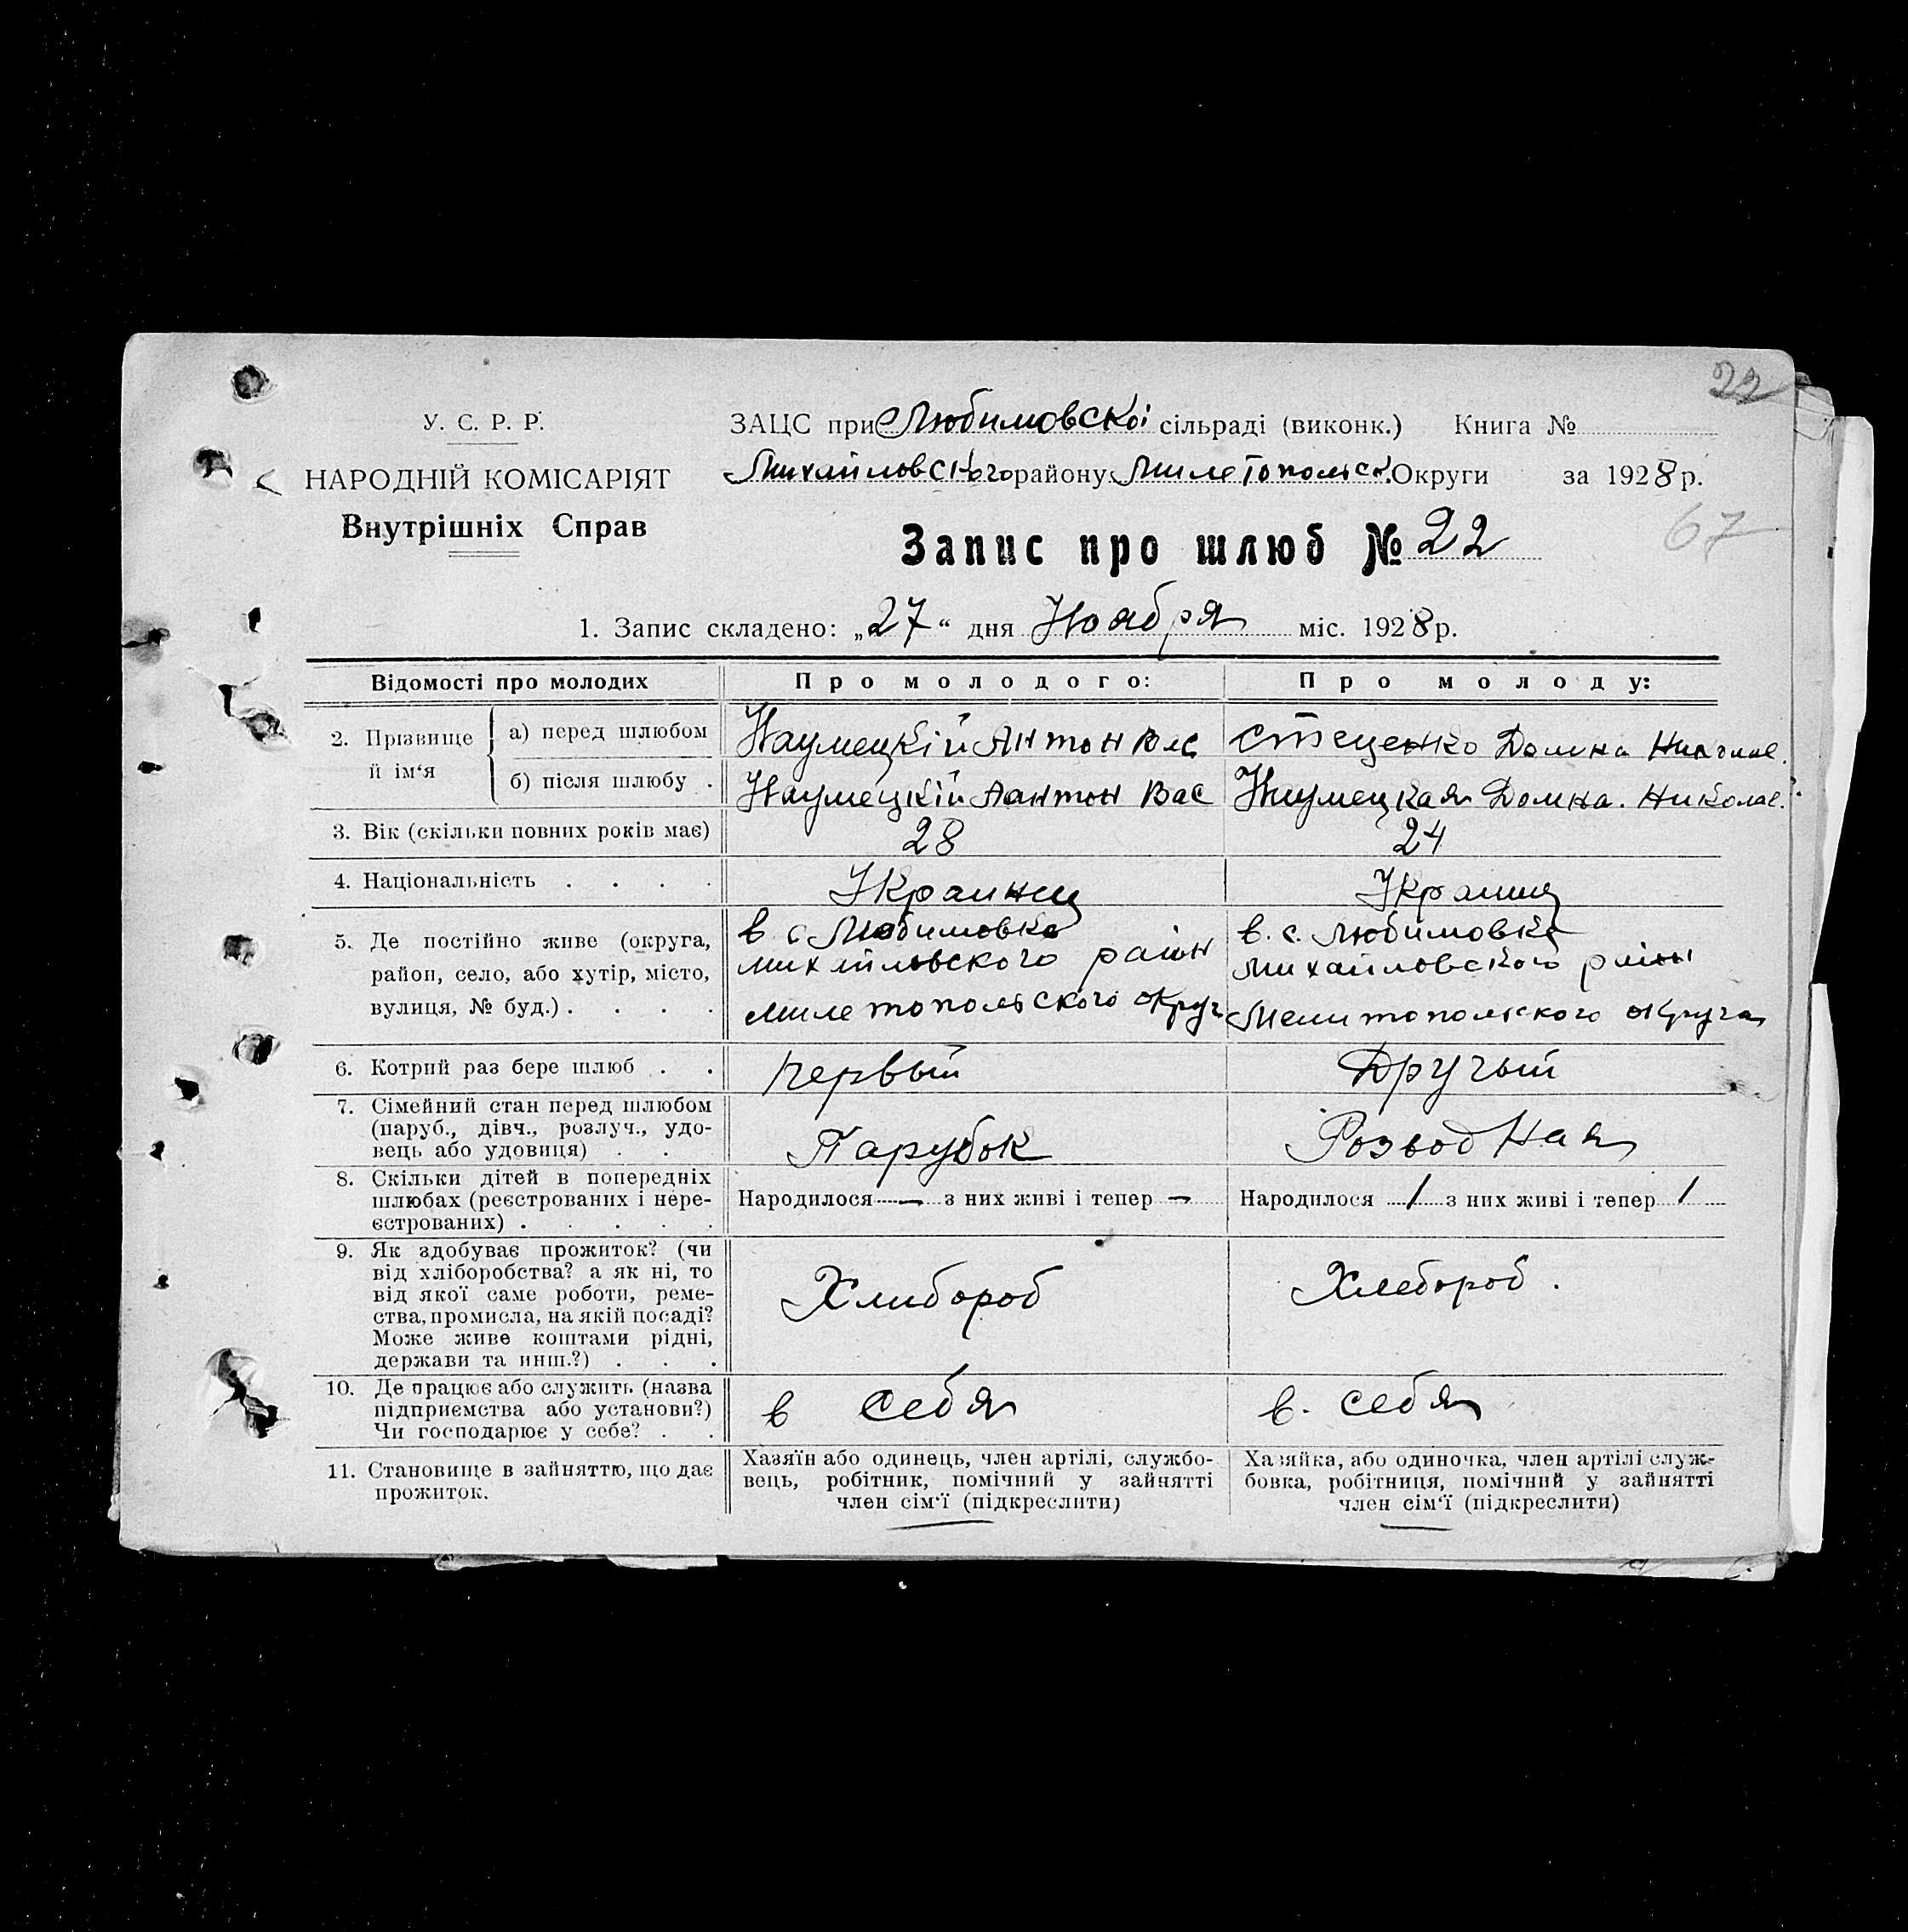 22
У. С. Р. Р.
НАРОДНІЙ КОМІСАРІЯТ
Внутрішніх Справ
ЗАЦС при Любимовскоі сільраді (виконк.) Книга №
Михайловского району Милетопольск. Округи за 1928 р.
67
Запис про шлюб № 22
1. Запис складено: „27“ дня Ноября міс. 1928 р.
Відомості про молодих
Про молодого:
Про молоду:
2. Прізвище й ім‘я
а) перед шлюбом
Наумецкій Антон Вас
Стеценко Домна Николае.
б) після шлюбу .
Наумецкій Аантон Вас
Наумецкая Домна. Николае.
3. Вік (скільки повних років має)
28
24
4. Національність . . . .
Украинец
Украинц
5. Де постійно живе (округа,
район, село, або хутір, місто,
вулиця, № буд.) . . . .
в с Любимовка
михайловского район
милетопольского округ
в. с. Любимовка
михайловского район
Мелитопольского округа
6. Котрий раз бере шлюб . .
первый
Другый
7. Сімейний стан перед шлюбом
(паруб., дівч., розлуч., удо-
вець або удовиця) . . .
Парубок
Розводная
8. Скільки дітей в попередніх
шлюбах (реєстрованих і нере-
єстрованих) . . . . .
Народилося — з них живі і тепер —
Народилося 1 з них живі і тепер 1
9. Як здобуває прожиток? (чи
від хліборобства? а як ні, то
від якої саме роботи, реме-
ства, промисла, на якій посаді?
Може живе коштами рідні,
держави та инш.?) . . .
Хлибороб
Хлебороб.
10. Де працює або служить (назва
підприємства або установи?)
Чи господарює у себе? . .
в себя
в. себя
11. Становище в зайняттю, що дає
прожиток.
Хазяїн або одинець, член артілі, службо-
вець, робітник, помічний у зайнятті
член сім‘ї (підкреслити)
Хазяйка, або одиночка, член артілі служ-
бовка, робітниця, помічний у зайнятті
член сім‘ї (підкреслити)